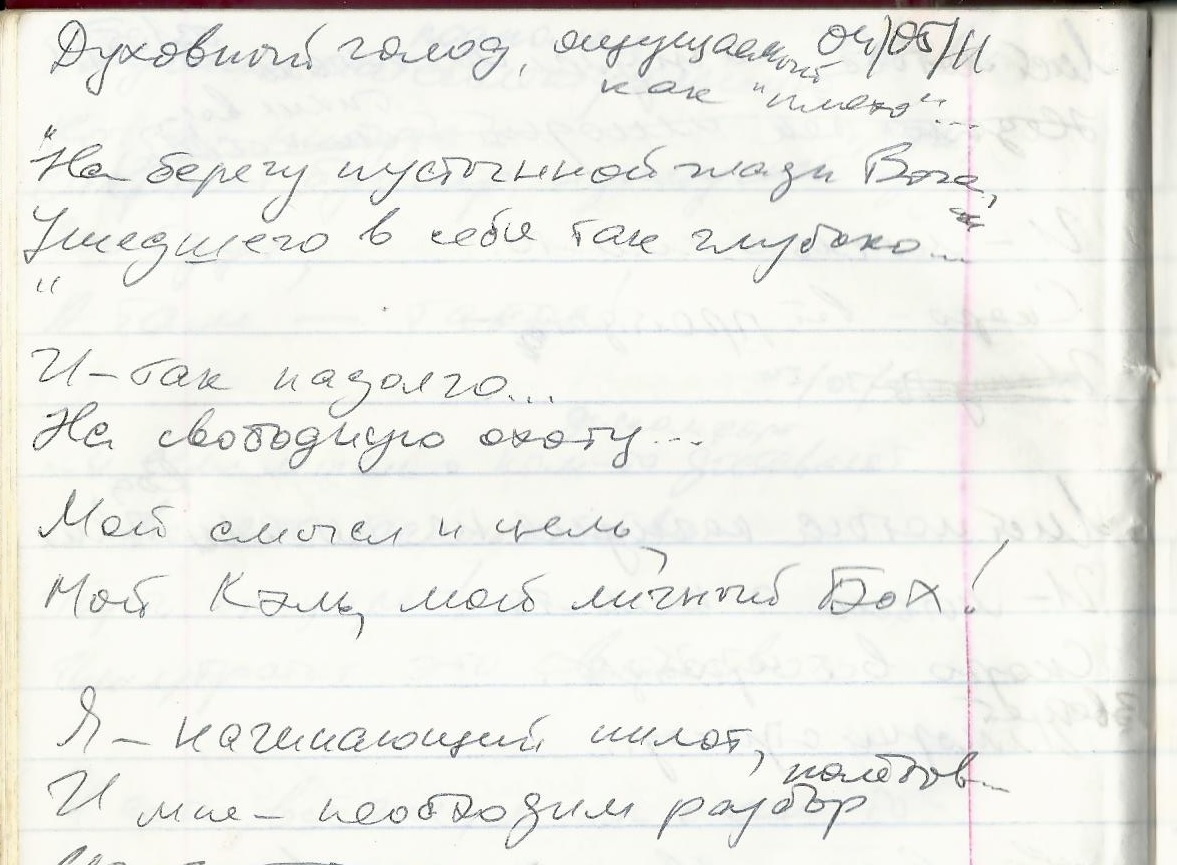 Духовный голод, ощущаемый 04/05/11
как "плохо"...
"На берегу пустынной глади Бога,
Ушедшего в себя так глубоко...
"
И – так надолго...
На свободную охоту...
Мой смысл и цель,
Мой Кэль, мой личный Бох!
Я – начинающий пилот,
И мне – необходим разбор полётов...